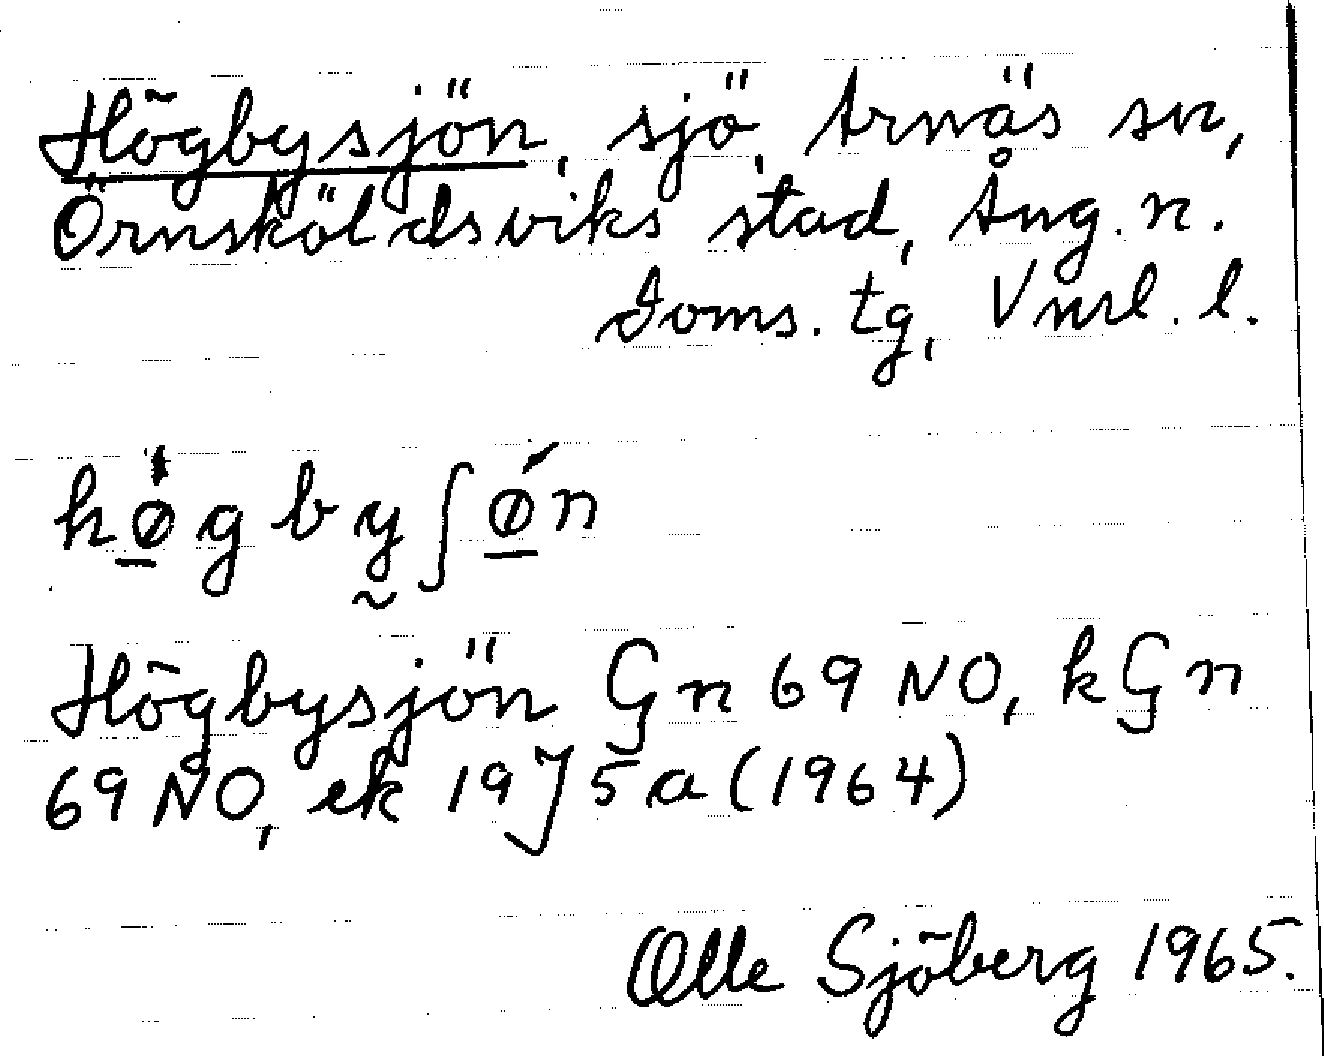 Högbysjön, sjö, Arnäs sn,
Örnsköldsviks stad, Ång. n.
doms. tg, Vnrl. l.
hǿ̱gby̰ʃǿ̱n
Högbysjön Gn 69 NO, kGn
69 NO, ek 19J5a (1964)
Olle Sjöberg 1965.